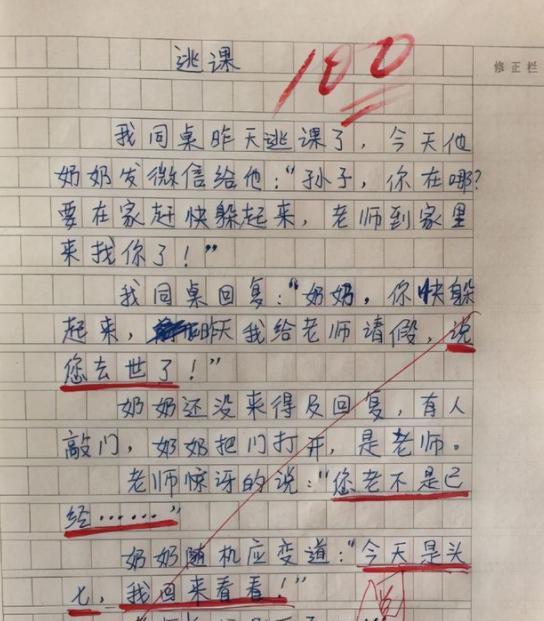 逃课
100
修正栏
我同桌昨天逃课了，今天他
奶奶发微信给他："孙子，你在哪？
要在家赶快躲起来，老师到家里
来找你了！"
我同桌回复："奶奶，你快躲
起来，昨天我给老师请假，说
您去世了！"
奶奶还没来得及回复，有人
敲门，奶奶把门打开，是老师。
老师惊讶的说："您老不是已
经……"
奶奶随机应变道："今天是头
七，我回来看看！"